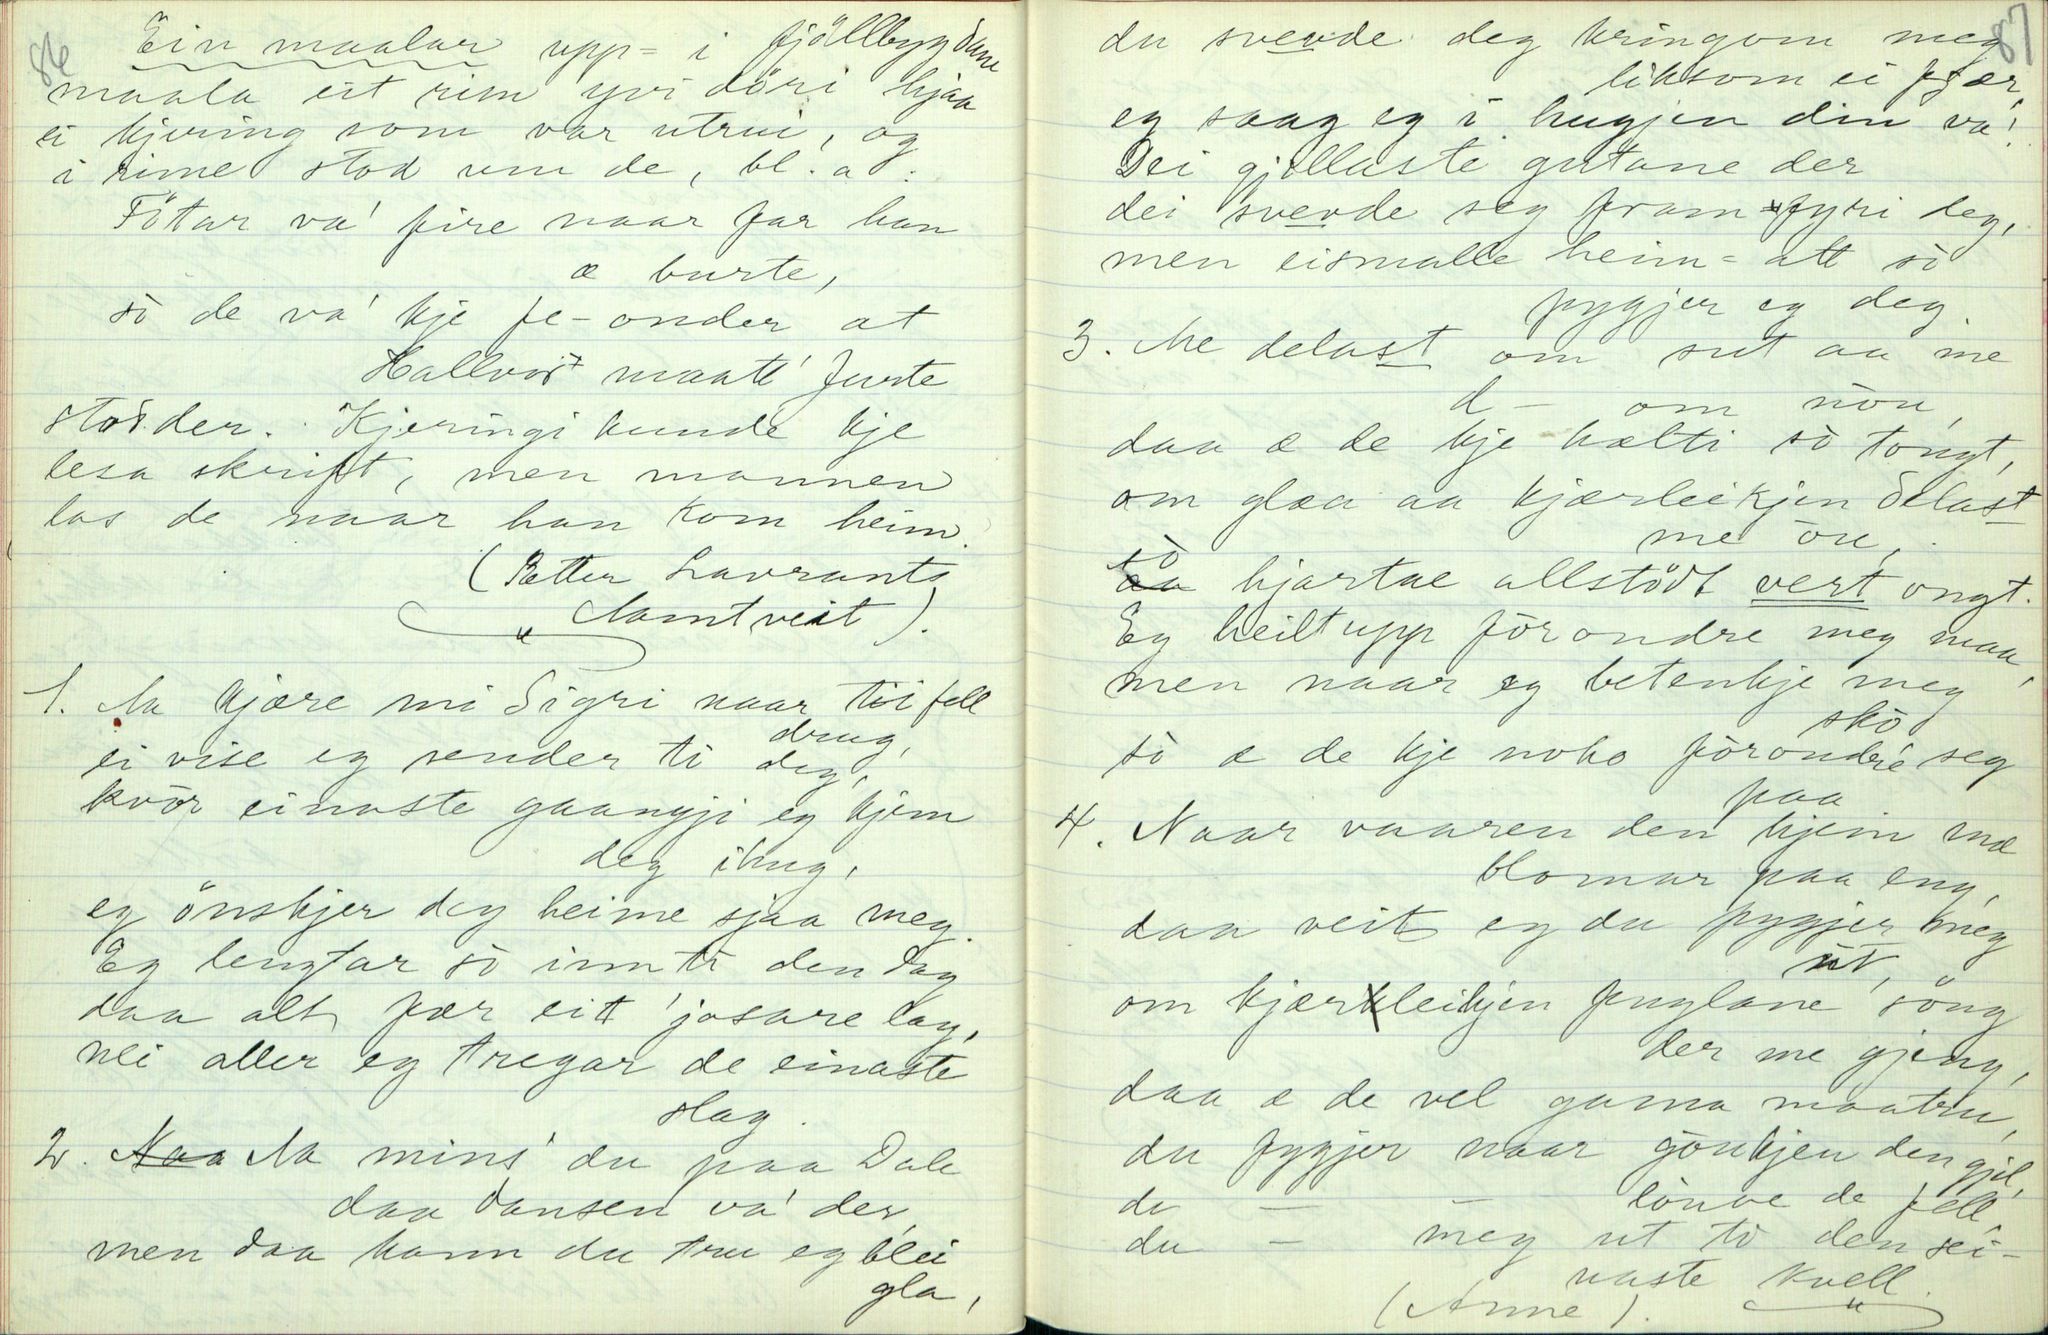 86
Ein maalar upp- i fjöllbygdane
maala eit rim yvi döri hjaa
ei kjering som var utrui, og
i rime stod um de, bl. a.:
Fötar va' fire naar far han
æ burte,
sò de va' kje fe-onder at
Hallvor maatt' furte
stod der. Kjeringi kunde kje
lesa skrift, men mannen
las de naar han kom heim.
(Petter Lavrants
Mamtveit).
1. Aa kjære mi Sigri naar tii fell
drug,
ei vise eg sender ti deg,
kvòr einaste gaangji eg kjem
deg ihug,
eg önskjer deg heime sjaa meg.
Eg lengtar sò inn ti den dag
daa alt fær eit josare lag,
nei aller eg tregar de einaste
slag.
2. Aa mins' du paa Dale
daa dansen va' der,
men daa kann du tru eg blei
gla,
87
du svevde deg kringom meg
liksom ei fjær,
eg saag eg i hugjen din va'.
Dei gjillaste gutane der
dei svevde seg fram fyri deg,
men eismalle heim-att sò
fygjer eg deg.
3. Me delast om sut aa me
d — om nòu,
daa æ de kje hælti sò tongt,
om glæa aa kjærleikjen delast
me òu,
sò hjartae allstödt vert ongt.
Eg heiltupp förondre meg maa,
men naar eg betenkje meg
skò
sò æ de kje noko förondre' seg
paa
4. Naar vaaren den kjem mæ
blomar paa eng,
daa veit eg du fygjer meg
ut,
om kjærleikjen fuglane söng
der me gjeng,
daa æ de vel gama maatru,
du fygjer naar gòukjen den gjel,
du — — lòuve de fell
du — meg ut ti den sei-
naste kvell.
(Anne).